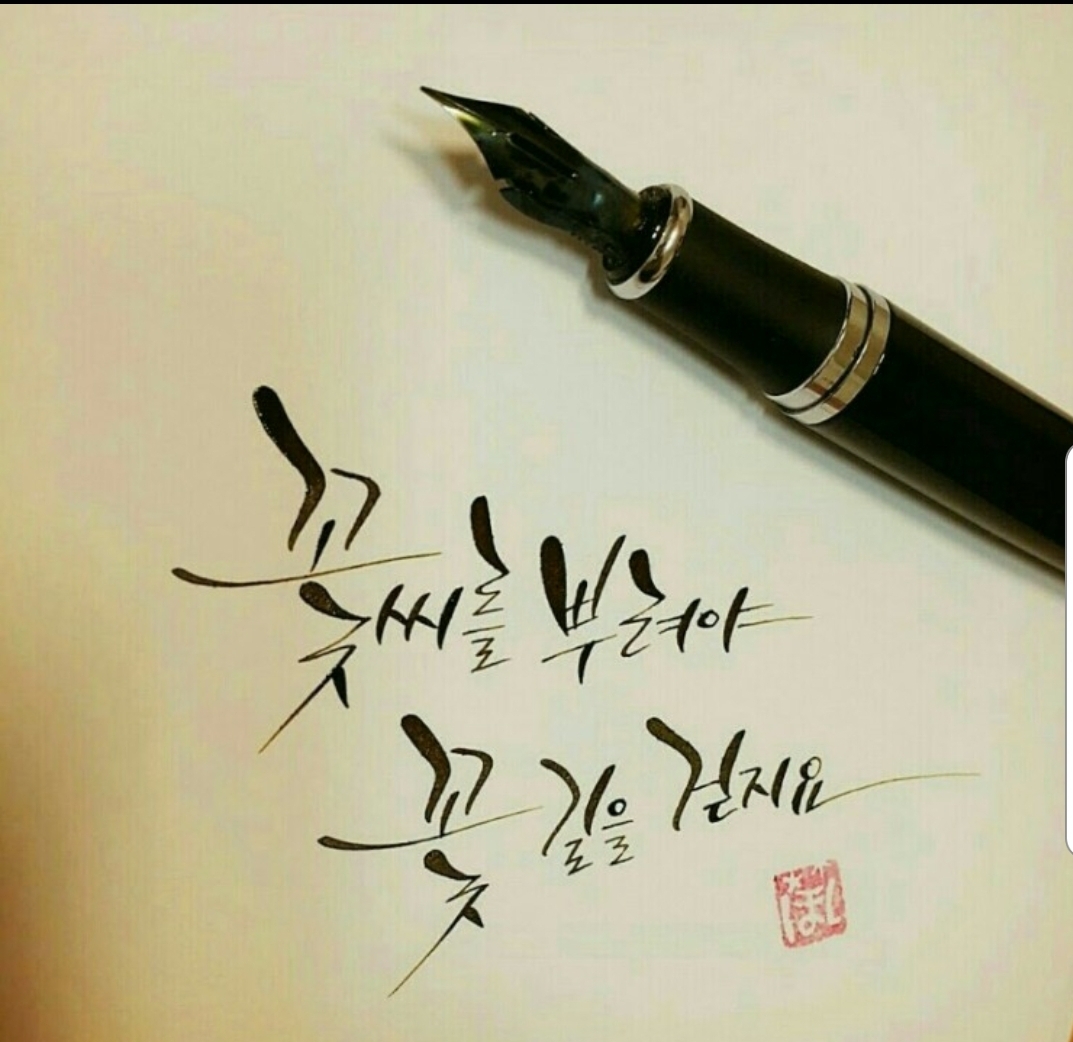 꽃씨를 뿌려야
꽃길을 걷지요